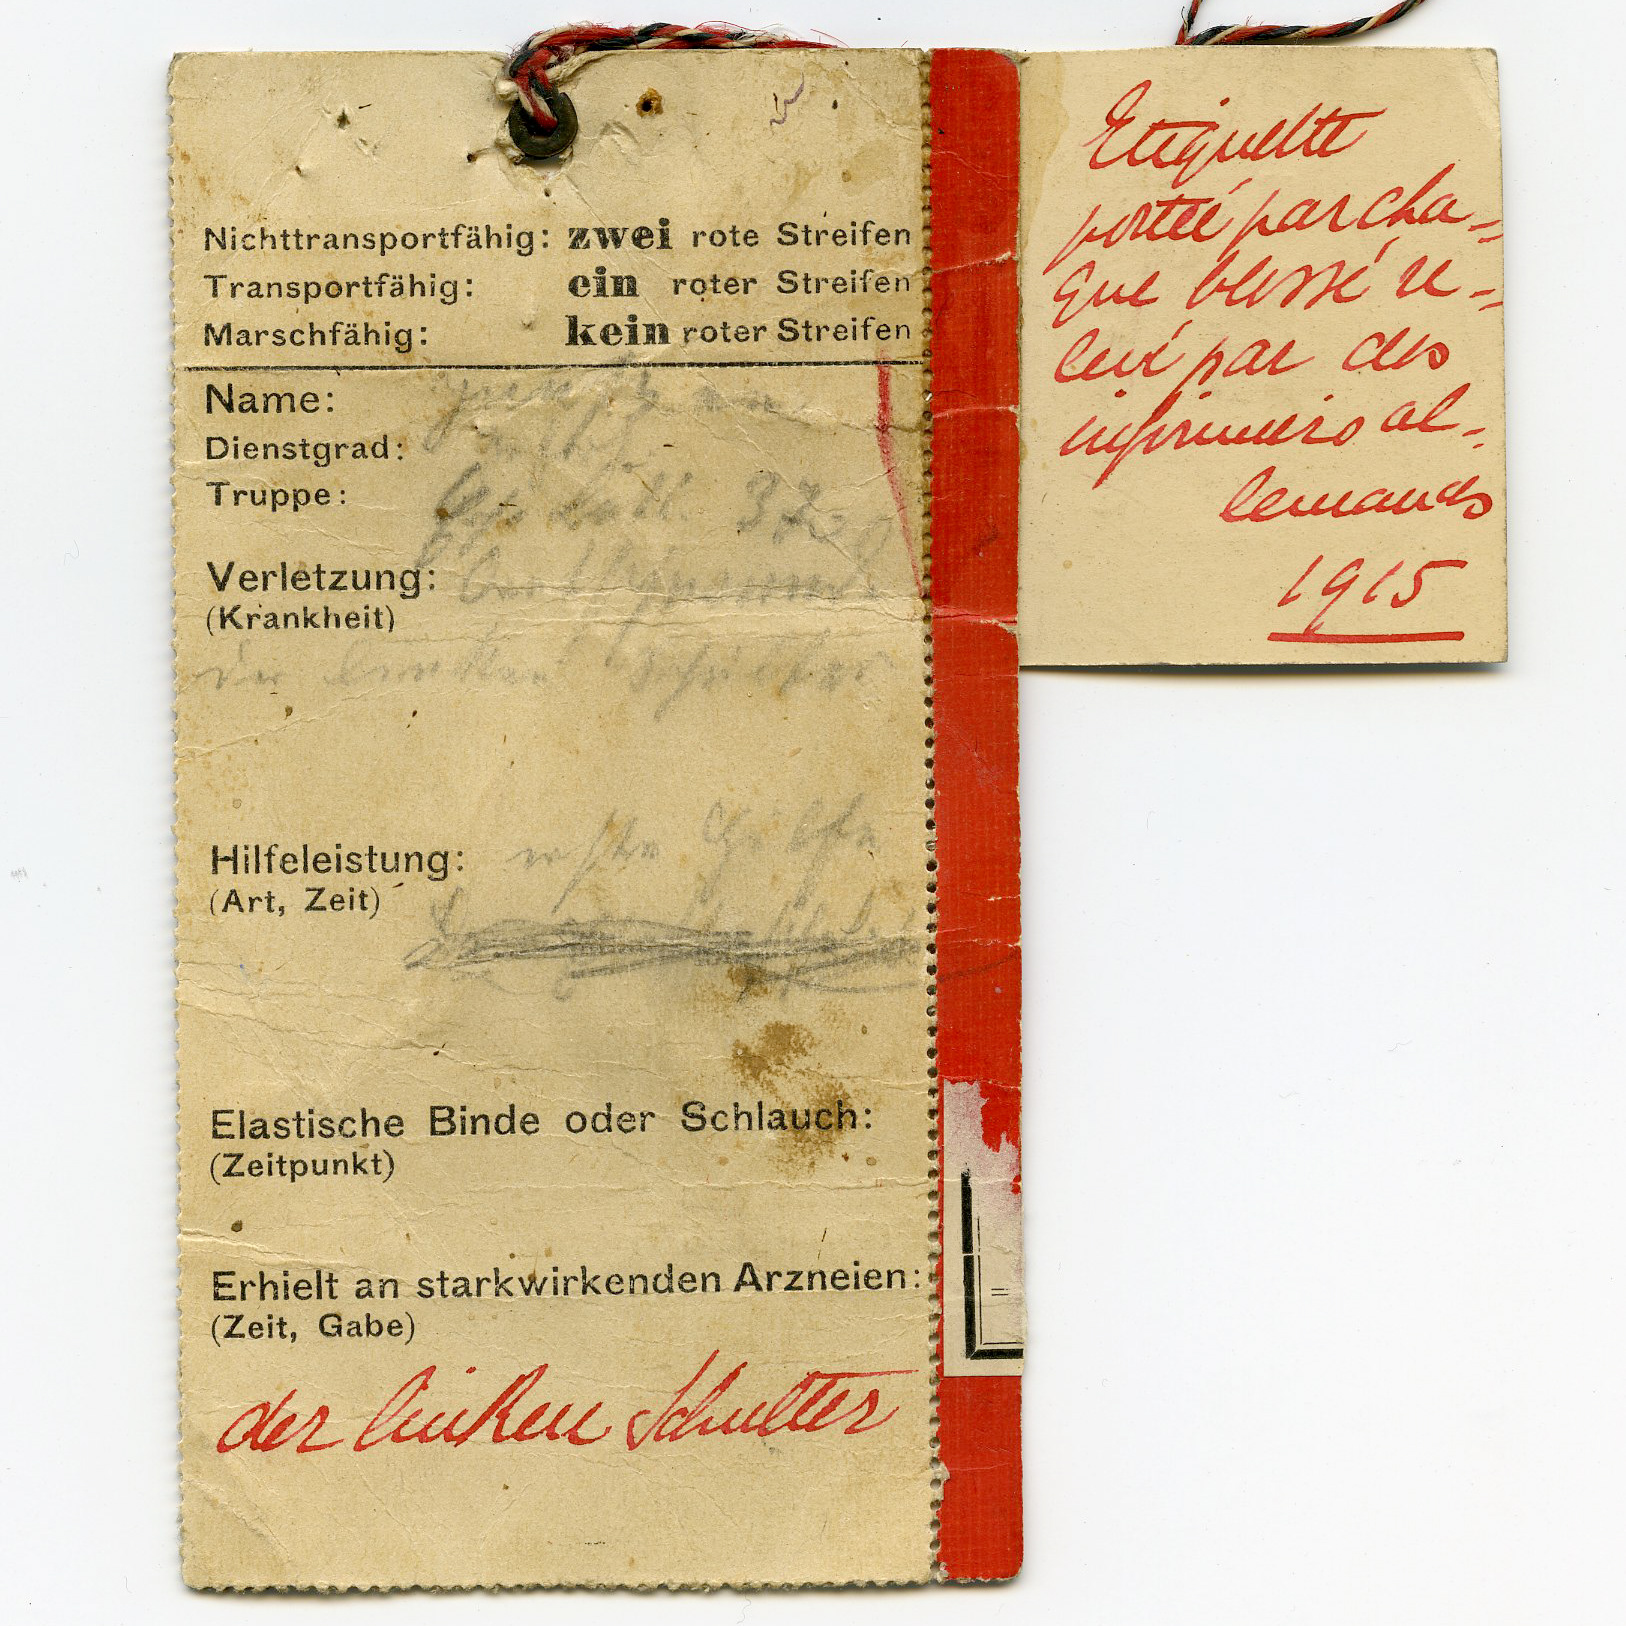 Nichttransportfähig: zwei rote Streifen
Transportfähig: ein roter Streifen
Marschfähig: kein roter Streifen
Name:
Dienstgrad:
Truppe: 37
Verletzung:
(Krankheit)
der linken Schulter
Hilfeleistung: erste Hilfe
(Art, Zeit)
Elastische Binde oder Schlauch:
(Zeitpunkt)
Erhielt an starkwirkenden Arzneien:
(Zeit, Gabe)
der linken Schulter
Etiquette
portée par cha-
que blessé re-
levé par des
infirmiers al-
lemands
1915